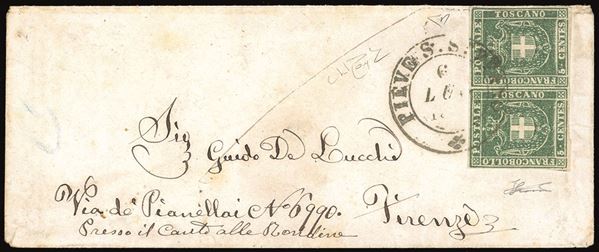 TOSCANO
POSTALE
5 CENTES
FRANCOBOLLO
TOSCANO
POSTALE
5 CENTES
FRANCOBOLLO
PIEVE S. S.
6
LUG
18
Sig
Guido De Lucchi
Via de' Pianellai No 6990. Firenze
Presso il Canto alle Rondine